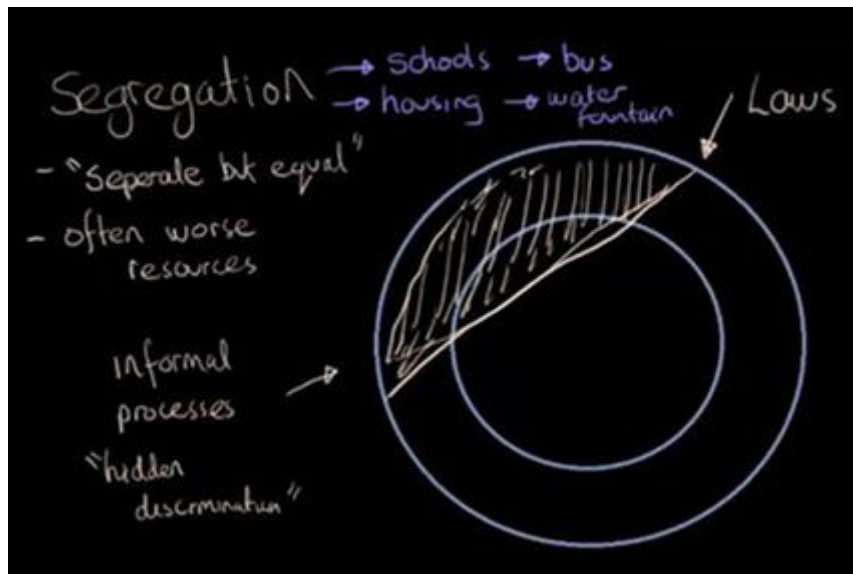 Segregation
→ schools → bus
→ housing → water fountain
Laws
- "seperate but equal"
- often worse
resources
informal
processes
"hidden
discrmination"